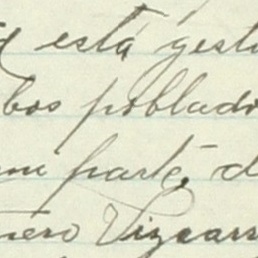 está gest
bos poblado
mi parte, d
nero Vizcarr